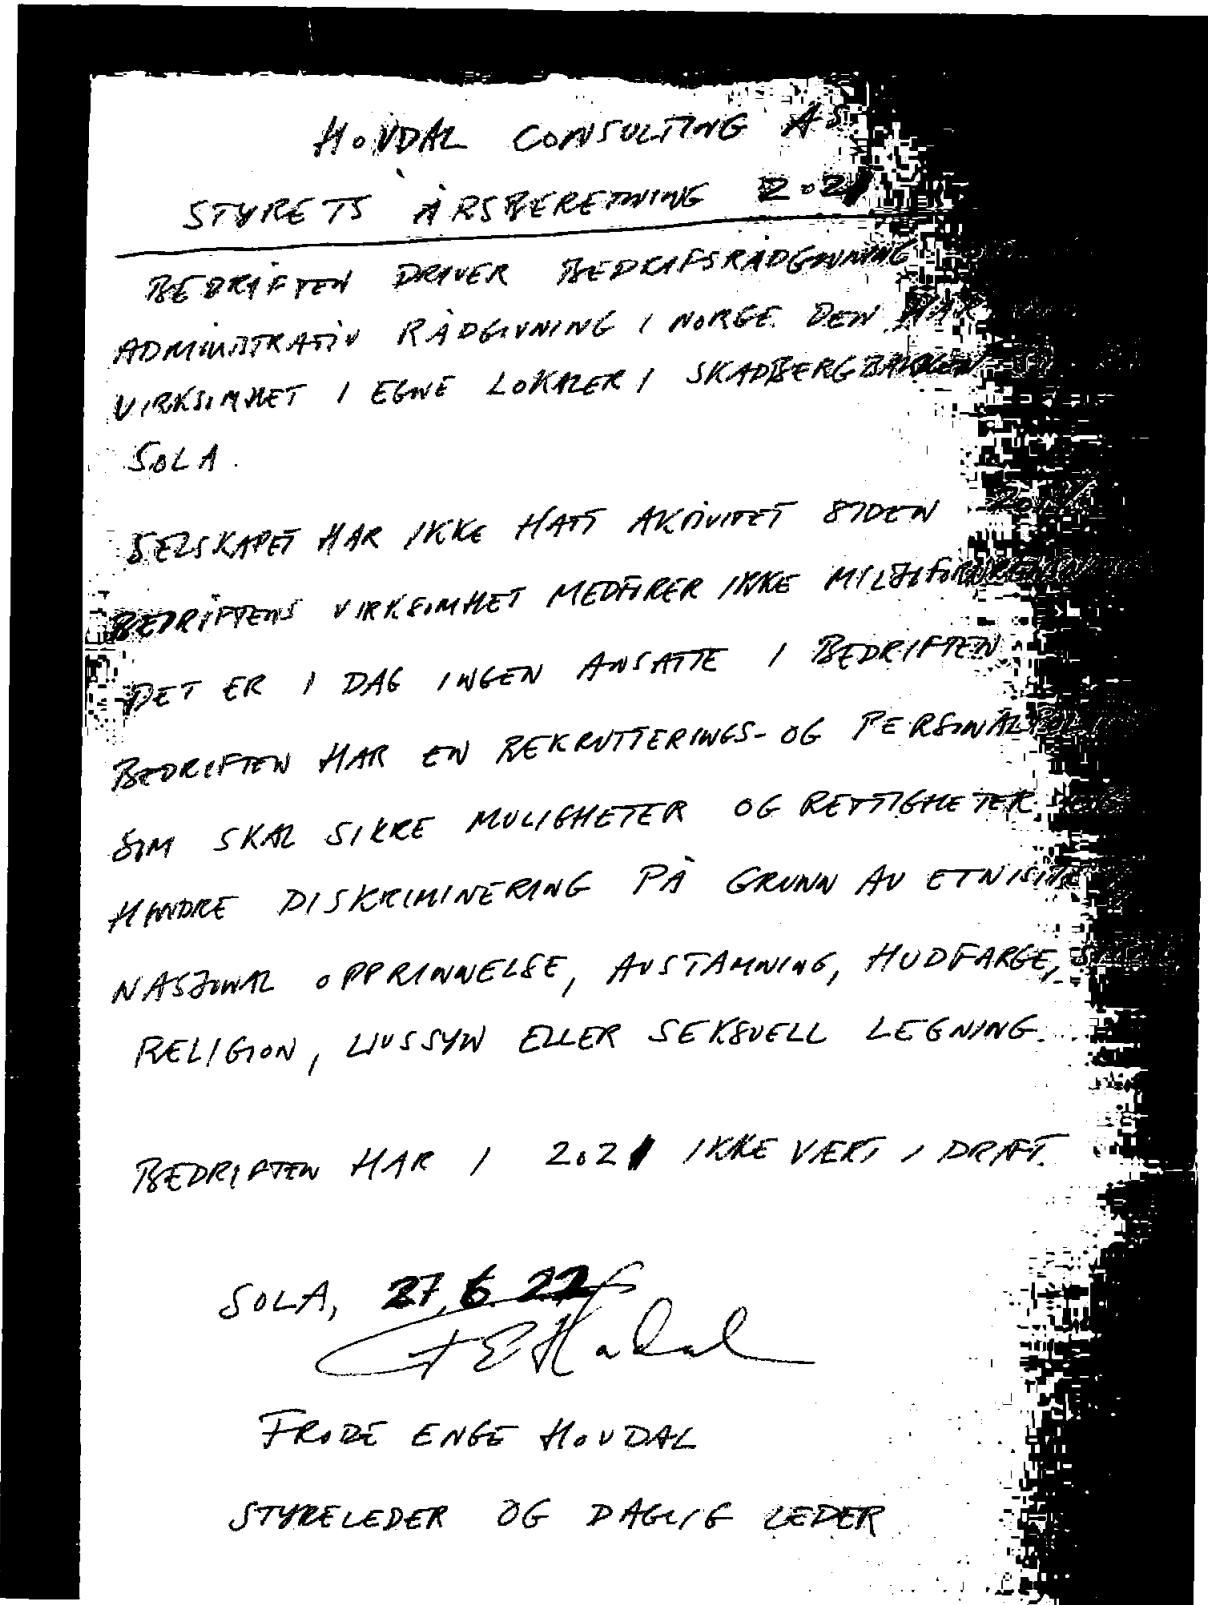 HOVDAL CONSULTING AS
STYRETS ÅRSBERETNING 2021
BEDRIFTEN DRIVER BEDRIFSRÅDGIVNING
ADMINISTRATIV RÅDGIVNING I NORGE. DEN HAR
VIRKSOMHET I EGNE LOKALER I SKADBERGBAKKEN
SOLA.
SELSKAPET HAR IKKE HATT AKTIVITET SIDEN
BEDRIFTENS VIRKSOMHET MEDFØRER IKKE MILJØFORURENSNING
DET ER I DAG INGEN ANSATTE I BEDRIFTEN
BEDRIFTEN HAR EN REKRUTTERINGS- OG
SOM SKAL SIKRE MULIGHETER OG RETTIGHETER
HINDRE DISKRIMINERING PÅ GRUNN AV ETNISITET
NASJONAL OPPRINNELSE, AVSTAMNING, HUDFARGE,
RELIGION, LIVSSYN ELLER SEKSUELL LEGNING.
BEDRIFTEN HAR I 2021 IKKE VÆRT I DRIFT.
SOLA, 27.6.22
FRODE ENGE HOVDAL
STYRELEDER OG DAGLIG LEDER